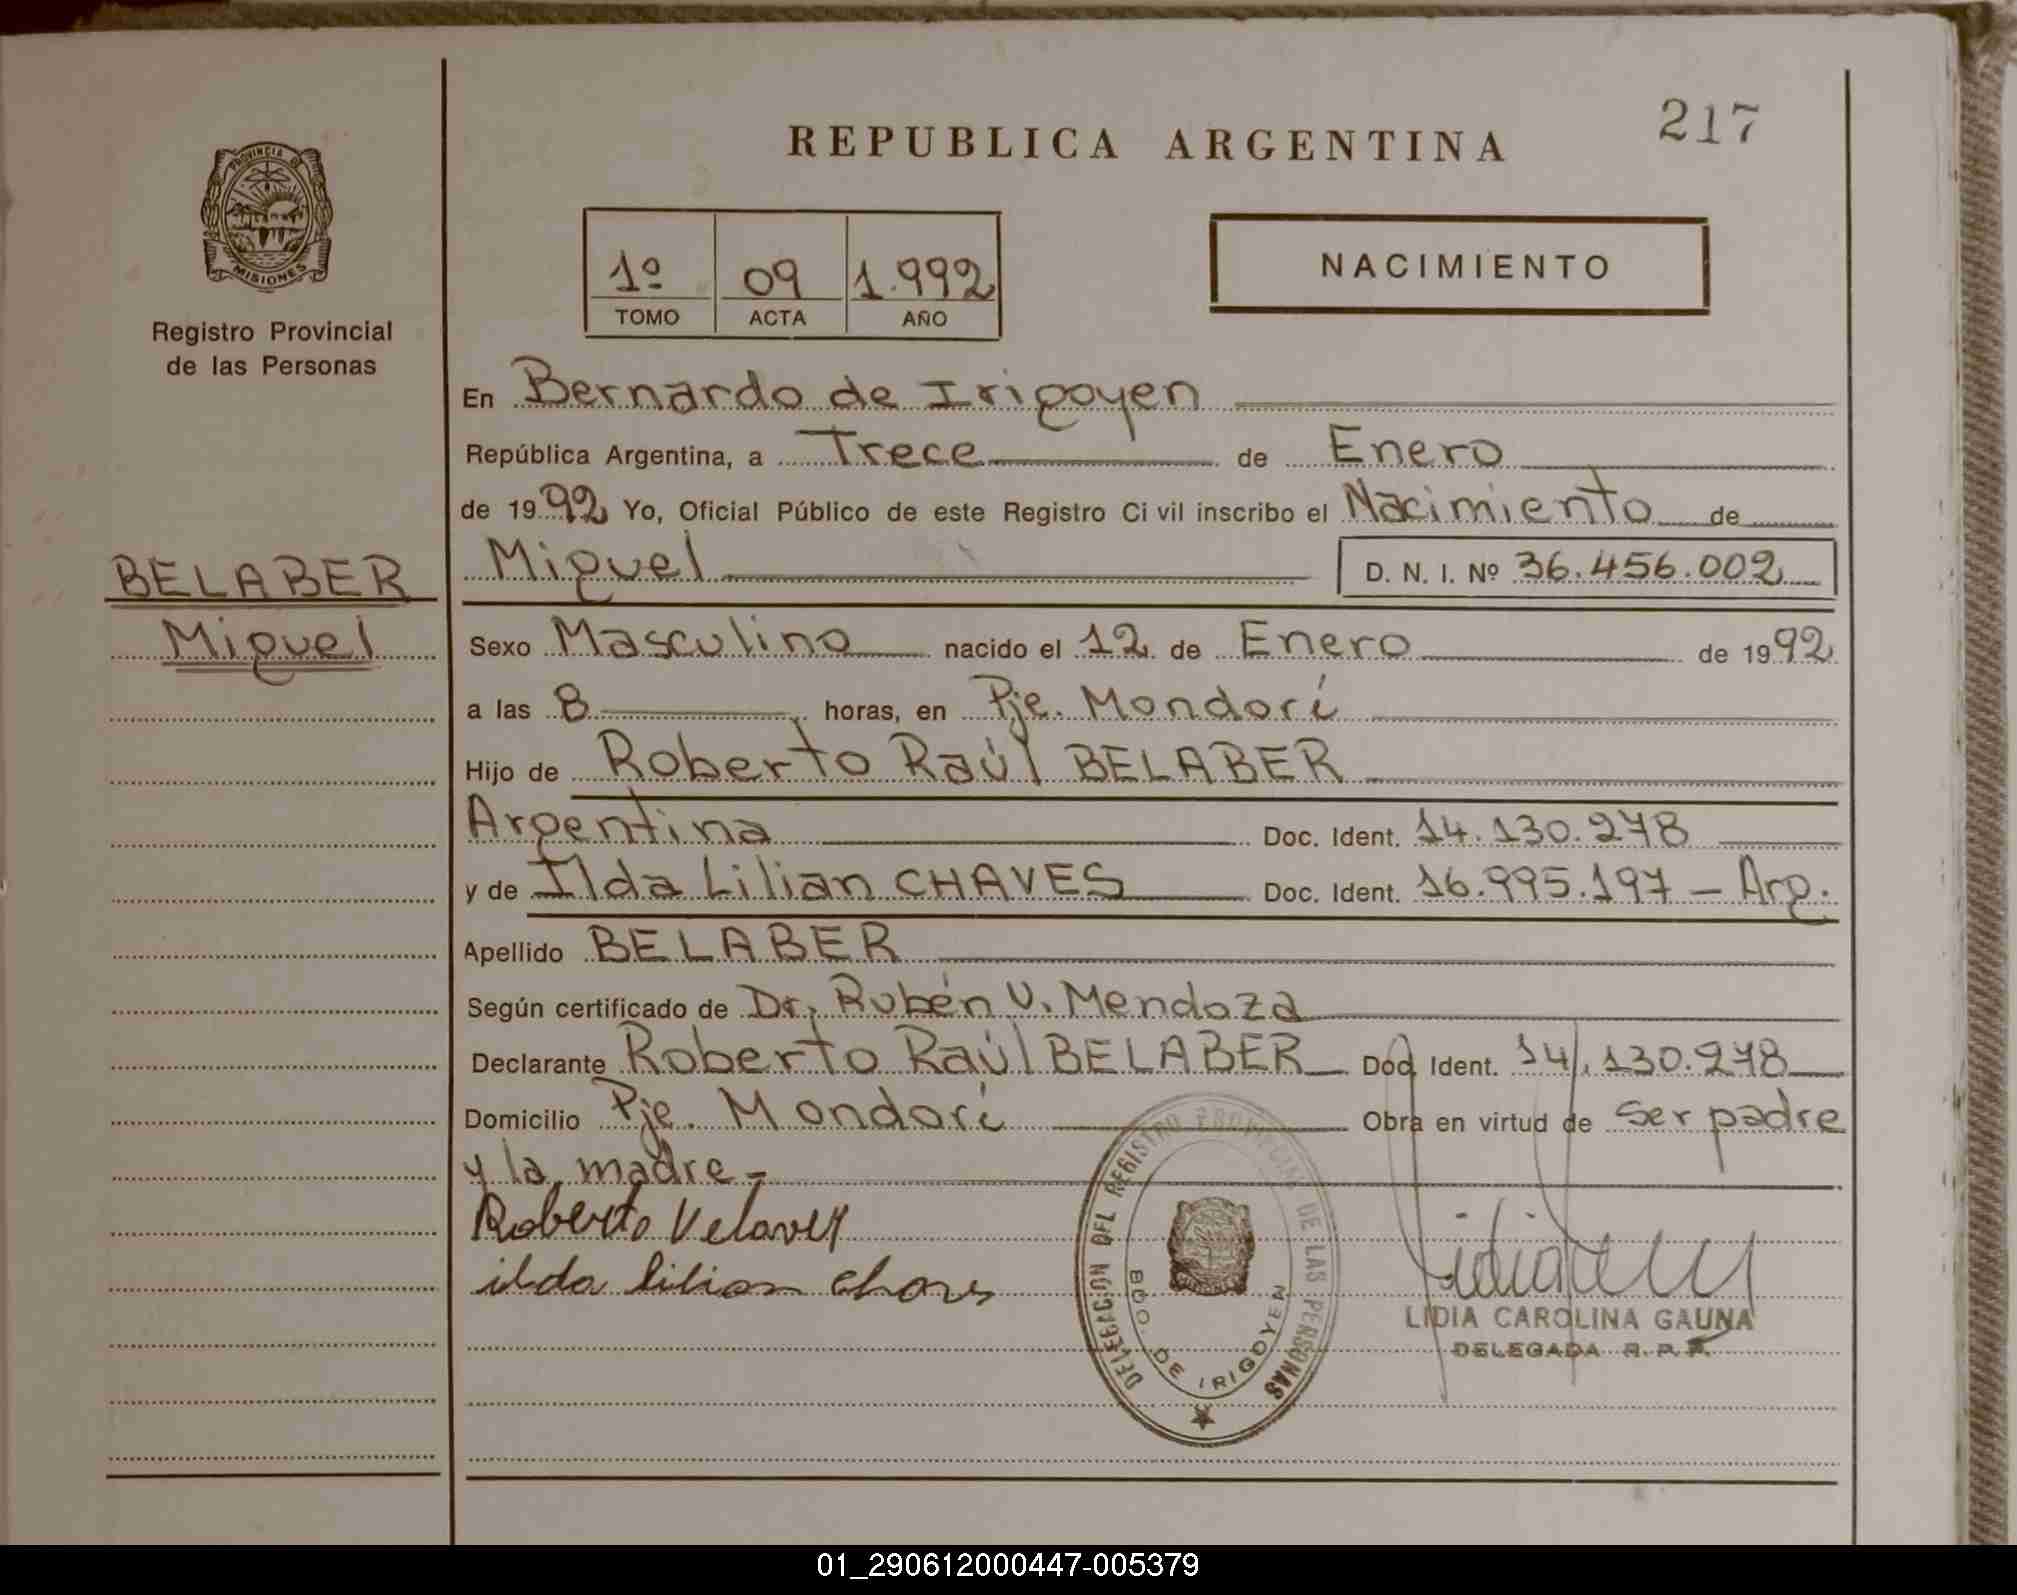 217
REPUBLICA ARGENTINA
PROVINCIA DE
MISIONES
Registro Provincial
de las Personas
1º 09 1.992
TOMO ACTA AÑO
NACIMIENTO
En Bernardo de Irigoyen
República Argentina, a Trece de Enero
de 1992 Yo, Oficial Público de este Registro Civil inscribo el Nacimiento de
BELABER
Miguel
Miguel D. N. I. Nº 36.456.002
Sexo Masculino nacido el 12 de Enero de 1992
a las 8 horas, en Pje. Mondorí
Hijo de Roberto Raúl BELABER
Argentina Doc. Ident. 14.130.278
y de Ilda Lilian CHAVES Doc. Ident. 16.995.197 - Arg.
Apellido BELABER
Según certificado de Dr. Rubén V. Mendoza
Declarante Roberto Raúl BELABER Doc. Ident. 14.130.278
Domicilio Pje. Mondorí Obra en virtud de ser padre
y la madre -
Roberto Velaver
ilda lilian chaves
DELEGACION DEL REGISTRO PROVINCIAL DE LAS PERSONAS
BDO. DE IRIGOYEN
LIDIA CAROLINA GAUNA
DELEGADA R. P. P.
01_290612000447-005379